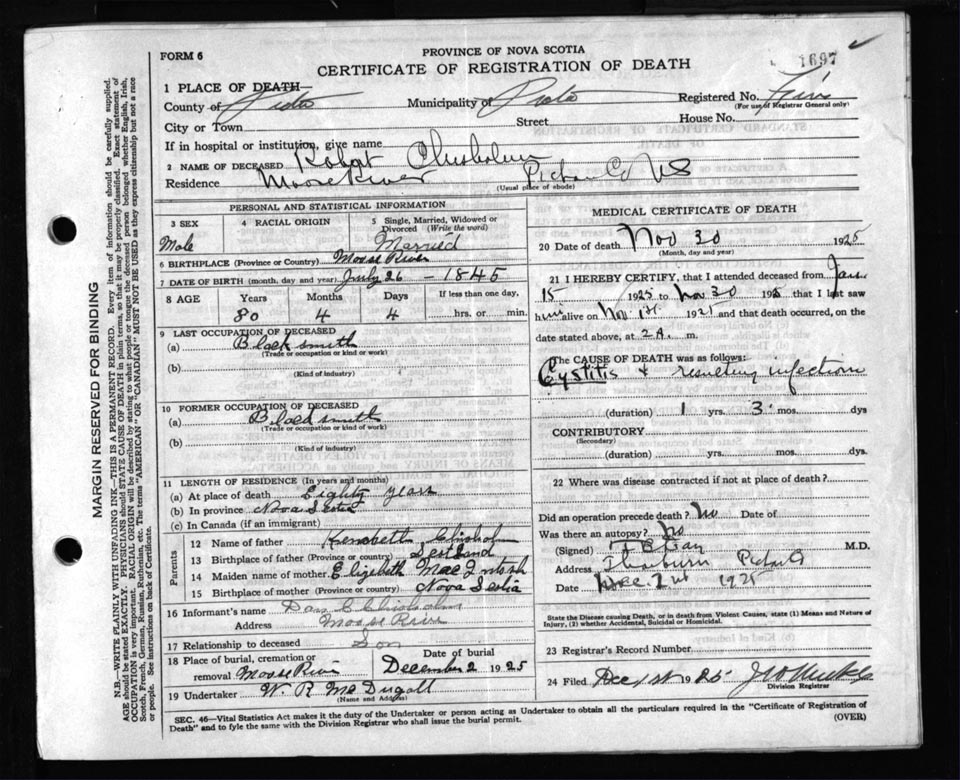 FORM 6
PROVINCE OF NOVA SCOTIA
1697
CERTIFICATE OF REGISTRATION OF DEATH
1 PLACE OF DEATH
County of Municipality of Registered No.
(For use of Registrar General only)
City or Town Street House No.
If in hospital or institution, give name
2 NAME OF DECEASED Robert Chisholm
Residence Moose River Pictou Co NS
(Usual place of abode)
PERSONAL AND STATISTICAL INFORMATION
3 SEX 4 RACIAL ORIGIN 5 Single, Married, Widowed or Divorced (Write the word)
Male Married
6 BIRTHPLACE (Province or Country) Moose River
7 DATE OF BIRTH (month, day and year) July 26 - 1845
8 AGE Years Months Days If less than one day,
80 4 4 hrs. or min.
9 LAST OCCUPATION OF DECEASED
(a) Black smith
(Trade or occupation or kind or work)
(b)
(Kind of industry)
10 FORMER OCCUPATION OF DECEASED
(a)
(Trade or occupation or kind or work)
(b)
(Kind of industry)
11 LENGTH OF RESIDENCE (In years and months)
(a) At place of death Eighty years
(b) In province Nova Scotia
(c) In Canada (if an immigrant)
Parents
12 Name of father Kenneth Chisholm
13 Birthplace of father (Province or country)
14 Maiden name of mother Elizebeth MacIntosh
15 Birthplace of mother (Province or country) Nova Scotia
16 Informant's name Dan C Chisholm
Address Moose River
17 Relationship to deceased Son
18 Place of burial, cremation or removal Moose River
Date of burial December 2 1925
19 Undertaker W. R. McDugall
(Name and Address)
MEDICAL CERTIFICATE OF DEATH
20 Date of death Nov 30 1925
(Month, day and year)
21 I HEREBY CERTIFY, that I attended deceased from Jan.
15 1925 to Nov 30 192 that I last saw
him alive on Nov 192 and that death occurred, on the
date stated above, at 2 A. m.
The CAUSE OF DEATH was as follows:
Cystitis + resulting infection
(duration) 1 yrs. 3 mos. dys
CONTRIBUTORY
(Secondary)
(duration) yrs. mos. dys.
22 Where was disease contracted if not at place of death?
Did an operation precede death? No Date of
Was there an autopsy? No
(Signed) M.D.
Address Thorburn
Date 1925
State the Disease Causing Death, or in death from Violent Causes, state (1) Means and Nature of
Injury, (2) whether Accidental, Suicidal or Homicidal.
23 Registrar's Record Number
24 Filed Dec 25
Division Registrar
SEC. 46—Vital Statistics Act makes it the duty of the Undertaker or person acting as Undertaker to obtain all the particulars required in the "Certificate of Registration of
Death" and to fyle the same with the Division Registrar who shall issue the burial permit.
(OVER)
MARGIN RESERVED FOR BINDING
N.B.—WRITE PLAINLY WITH UNFADING INK—THIS IS A PERMANENT RECORD. Every item of information should be carefully supplied.
AGE should be stated EXACTLY. PHYSICIANS should STATE CAUSE OF DEATH in plain terms, so that it may be properly classified. Exact statement of
OCCUPATION is very important. RACIAL ORIGIN will be described by stating to what people or tongue the deceased person belonged whether English, Irish,
Scotch, French, German, Russian, Ruthenian, etc. The terms "AMERICAN" OR "CANADIAN" MUST NOT BE USED as they express citizenship but not a race
or people. See instructions on back of Certificate.